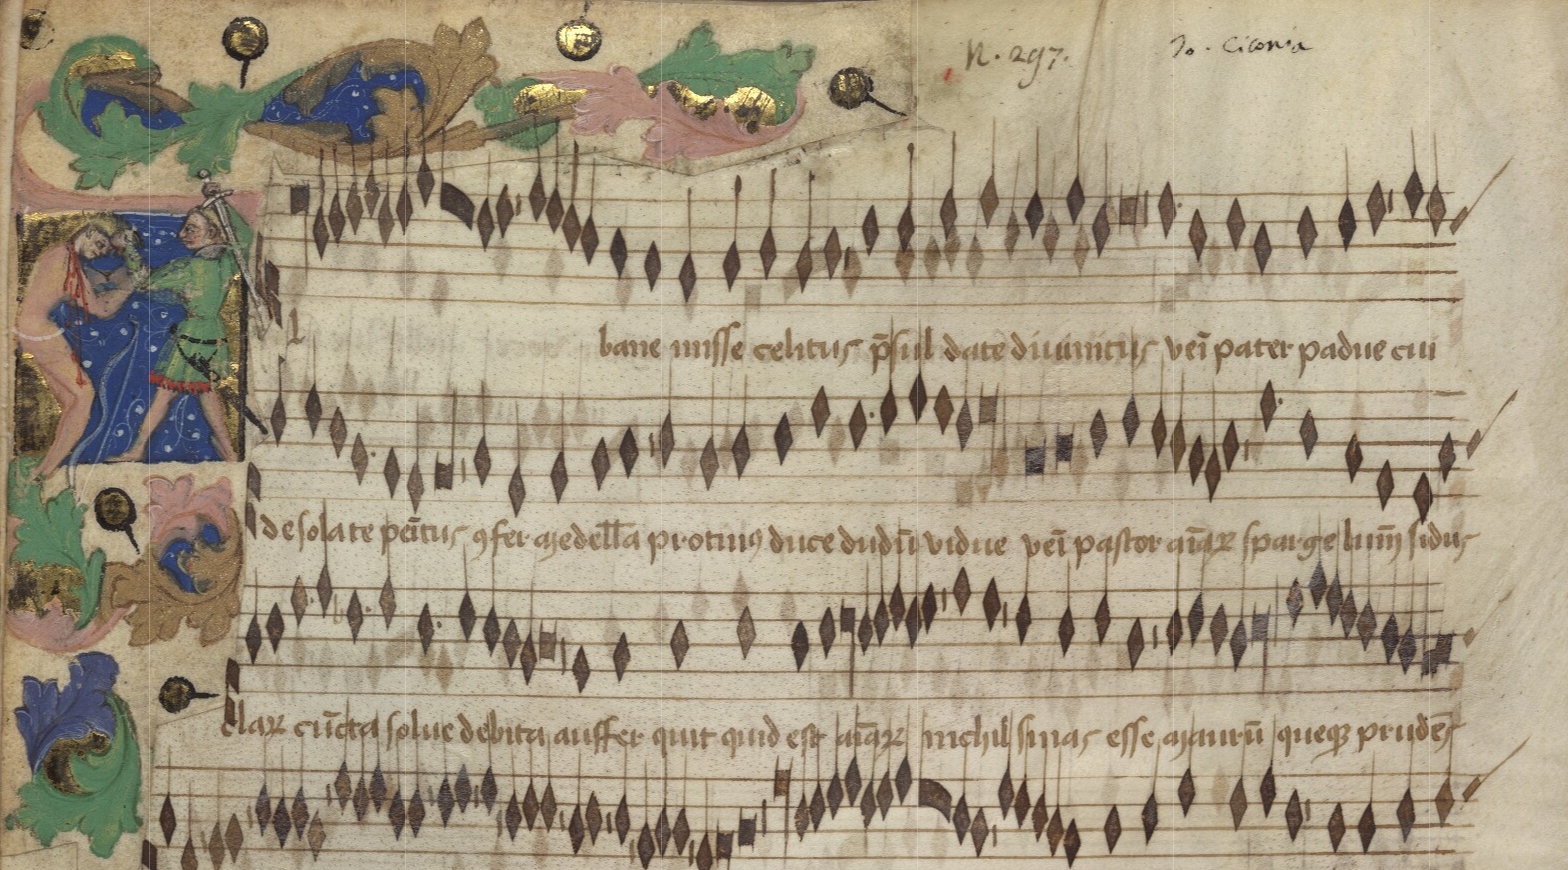 N. 297.
Jo. Ciconia
bane misse celitus p̄sul date diuinitus vēi pater padue cui
desolate pēitus ꝯfer medell̄a protinus duce dudū vidue vēi pastor aīaꝝ sparge lumī sidus
claꝝ cūcta solue debita auffer quit quid est amaꝝ nichil sinas esse maurū queqꝫ prudēs